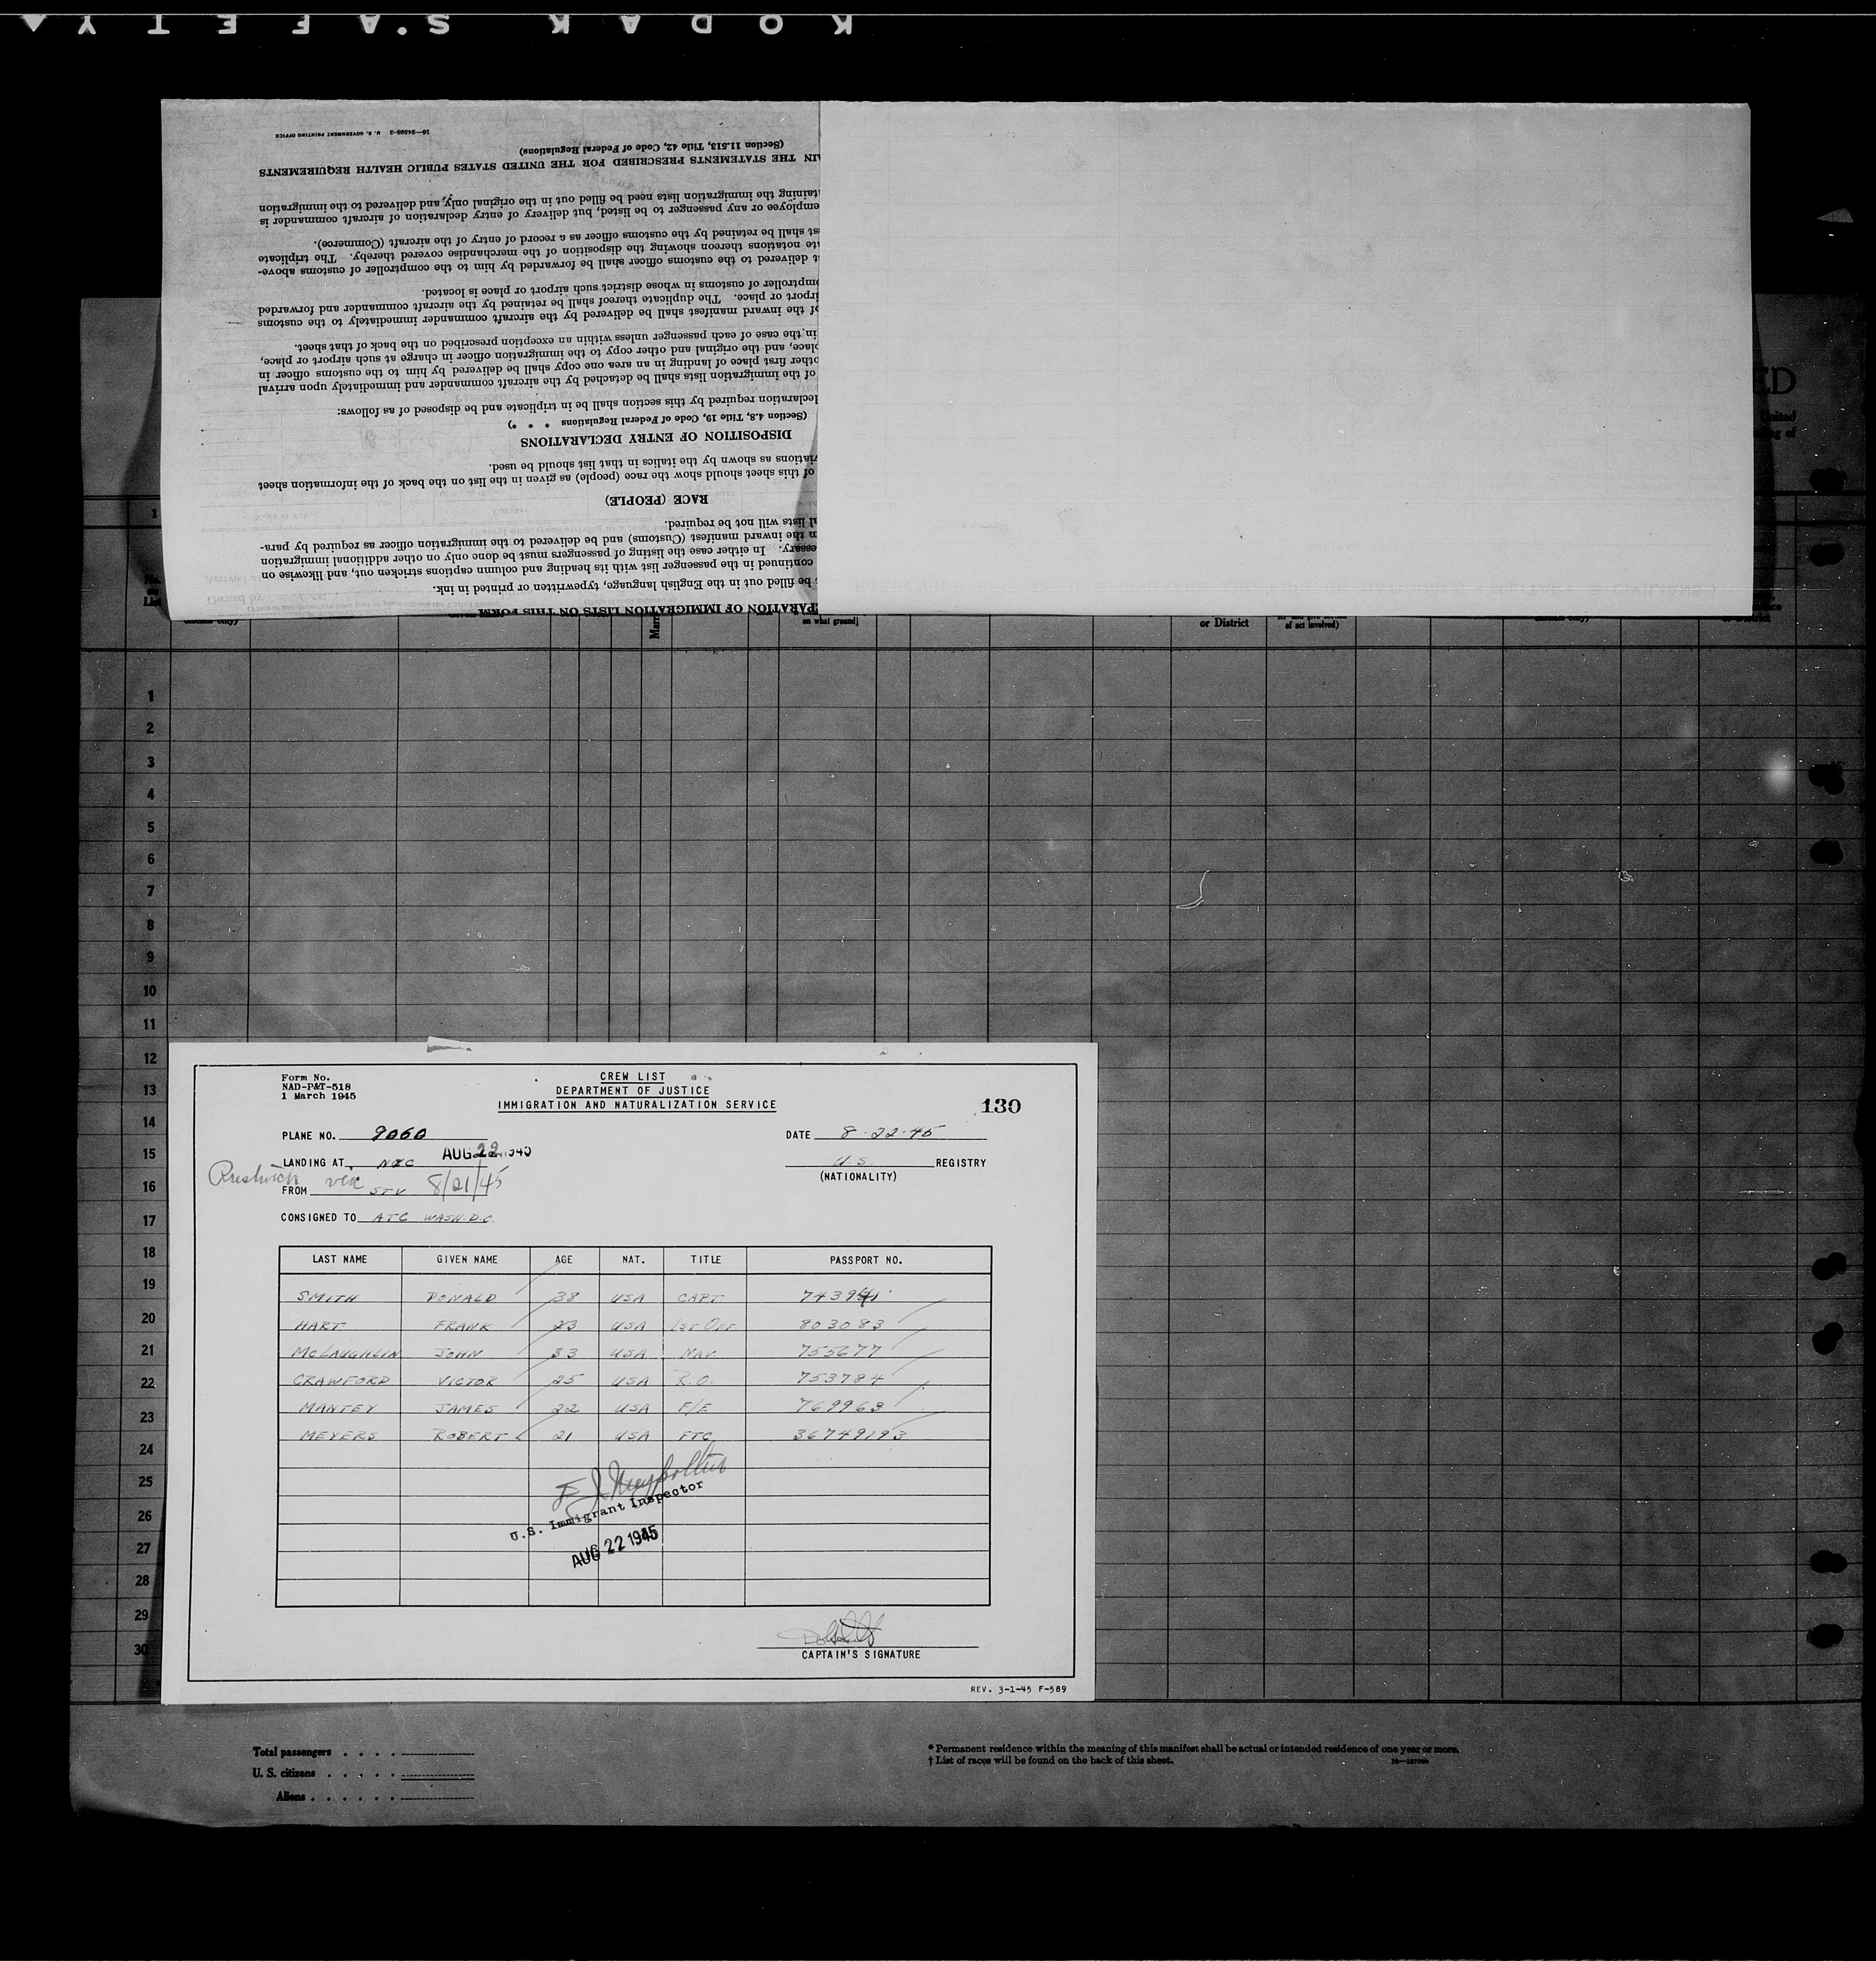 KODAK SAFETY
16—24398-2 U. S. GOVERNMENT PRINTING OFFICE
(Section 11.513, Title 42, Code of Federal Regulations)
THE STATEMENTS PRESCRIBED FOR THE UNITED STATES PUBLIC HEALTH REQUIREMENTS
taining the immigration lists need be filled out in the original only, and delivered to the immigration
employee or any passenger to be listed, but delivery of entry declaration of aircraft commander is
st shall be retained by the customs officer as a record of entry of the aircraft (Commerce).
ate notations thereon showing the disposition of the merchandise covered thereby. The triplicate
t delivered to the customs officer shall be forwarded by him to the comptroller of customs above-
omptroller of customs in whose district such airport or place is located.
irport or place. The duplicate thereof shall be retained by the aircraft commander and forwarded
of the inward manifest shall be delivered by the aircraft commander immediately to the customs
in the case of each passenger unless within an exception prescribed on the back of that sheet.
place, and the original and other copy to the immigration officer in charge at such airport or place,
other first place of landing in an area one copy shall be delivered by him to the customs officer in
of the immigration lists shall be detached by the aircraft commander and immediately upon arrival
declaration required by this section shall be in triplicate and be disposed of as follows:
(Section 4.8, Title 19, Code of Federal Regulations * * *)
DISPOSITION OF ENTRY DECLARATIONS
viations as shown by the italics in that list should be used.
of this sheet should show the race (people) as given in the list on the back of the information sheet
RACE (PEOPLE)
al lists will not be required.
n the inward manifest (Customs) and be delivered to the immigration officer as required by para-
essary. In either case the listing of passengers must be done only on other additional immigration
continued in the passenger list with its heading and column captions stricken out, and likewise on
s be filled out in the English language, typewritten or printed in ink.
PARATION OF IMMIGRATION LISTS ON THIS FORM
ED
on what ground]
or District
of act involved)
1
2
3
4
5
6
7
8
9
10
11
12
13
14
15
16
17
18
19
20
21
22
23
24
25
26
27
28
29
30
Form No.
NAD-P&T-518
1 March 1945
CREW LIST
DEPARTMENT OF JUSTICE
IMMIGRATION AND NATURALIZATION SERVICE
130
PLANE NO. 9060
DATE 8-22-45
LANDING AT NYC AUG 22 1945
U.S. REGISTRY
(NATIONALITY)
Prestwick via
FROM STV 8/21/45
CONSIGNED TO ATC WASH. D.C.
LAST NAME GIVEN NAME AGE NAT. TITLE PASSPORT NO.
SMITH DONALD 38 USA CAPT
HART FRANK 23 USA 1ST OFF 803083
McLAUGHLIN JOHN 33 USA NAV. 755677
CRAWFORD VICTOR 25 USA R.O. 753784
MANTEY JAMES 22 USA F/E 769963
MEYERS ROBERT 21 USA FTC 36749193
U.S. Immigrant Inspector
AUG 22 1945
CAPTAIN'S SIGNATURE
REV. 3-1-45 F-589
Total passengers . . . .
U. S. citizens . . . . .
Aliens . . . . . .
* Permanent residence within the meaning of this manifest shall be actual or intended residence of one year or more.
† List of races will be found on the back of this sheet.